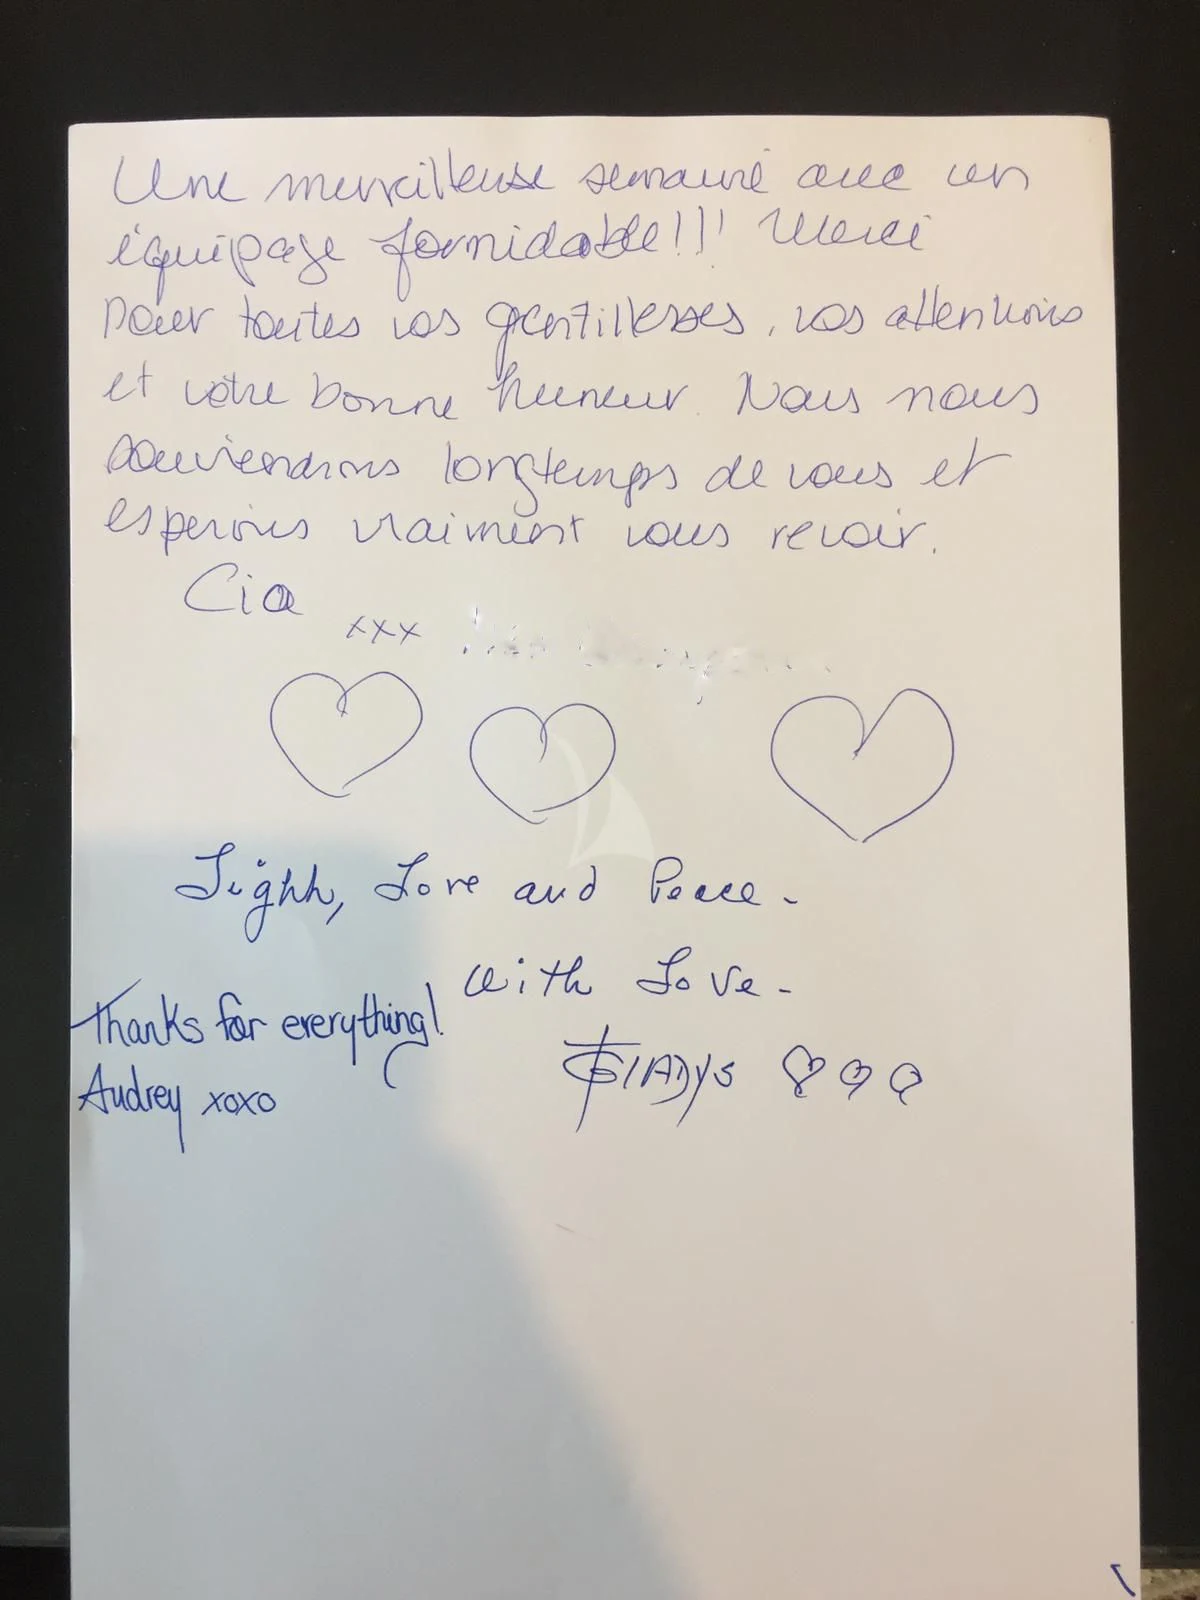 Une merveilleuse semaine avec un
équipage formidable!!! Merci
pour toutes vos gentillesses, vos attentions
et votre bonne humeur. Nous nous
souviendrons longtemps de vous et
esperons vraiment vous revoir.
Cia xxx
Light, Love and Peace.
With Love.
Thanks for everything!
GLADYS
Audrey xoxo